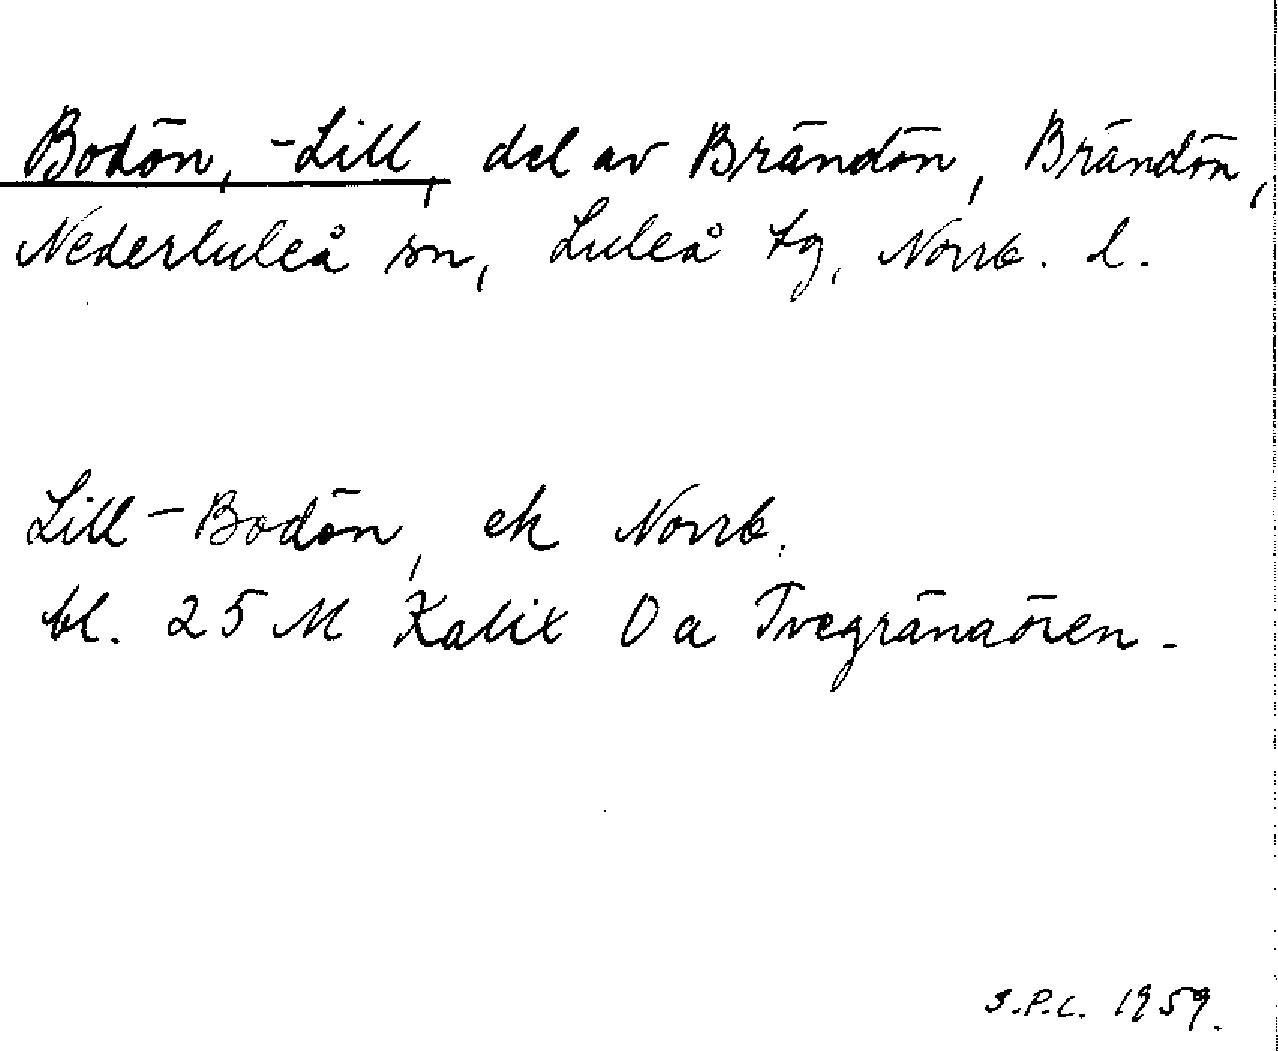 Bodön, -Lill, del av Brändön, Brändön,
Nederluleå sn, Luleå tg, Norrb. l.
Lill-Bodön, ek Norrb.
bl. 25 M Kalix 0 a Tvegränaören.
S.P.L. 1959.